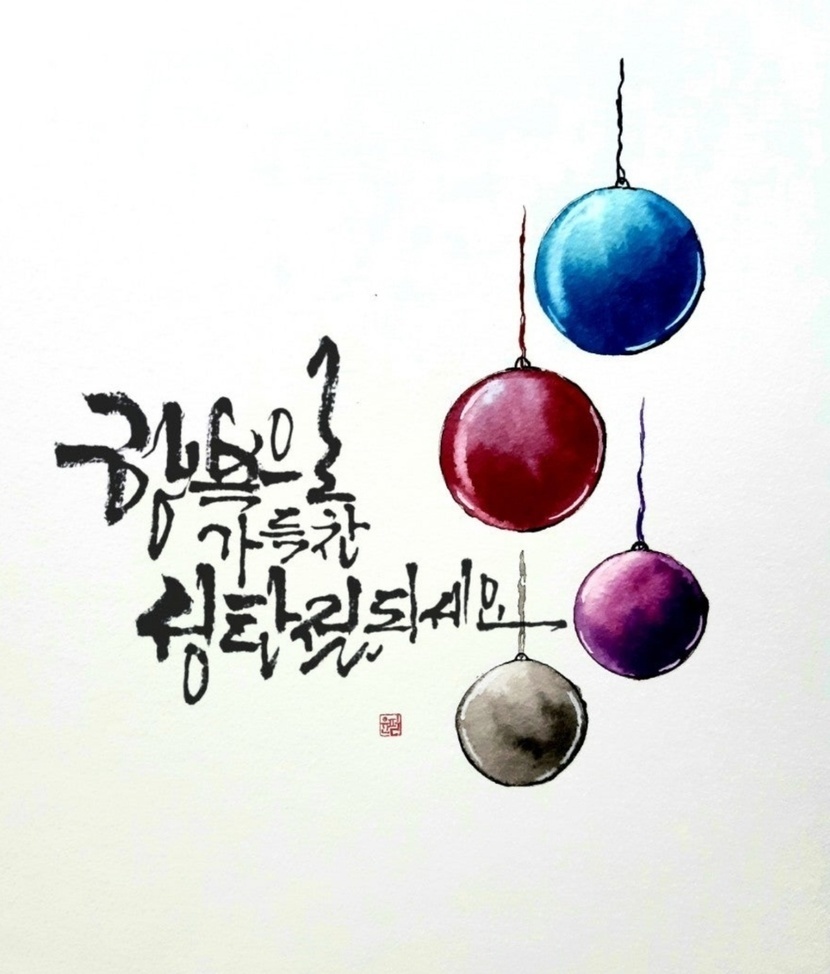 행복으로
가득찬
성탄절되세요